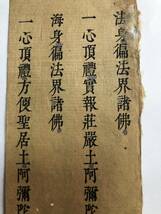 法身徧法界諸佛。
一心頂禮實報莊嚴土阿彌陀
海身徧法界諸佛。
一心頂禮方便聖居土阿彌陀